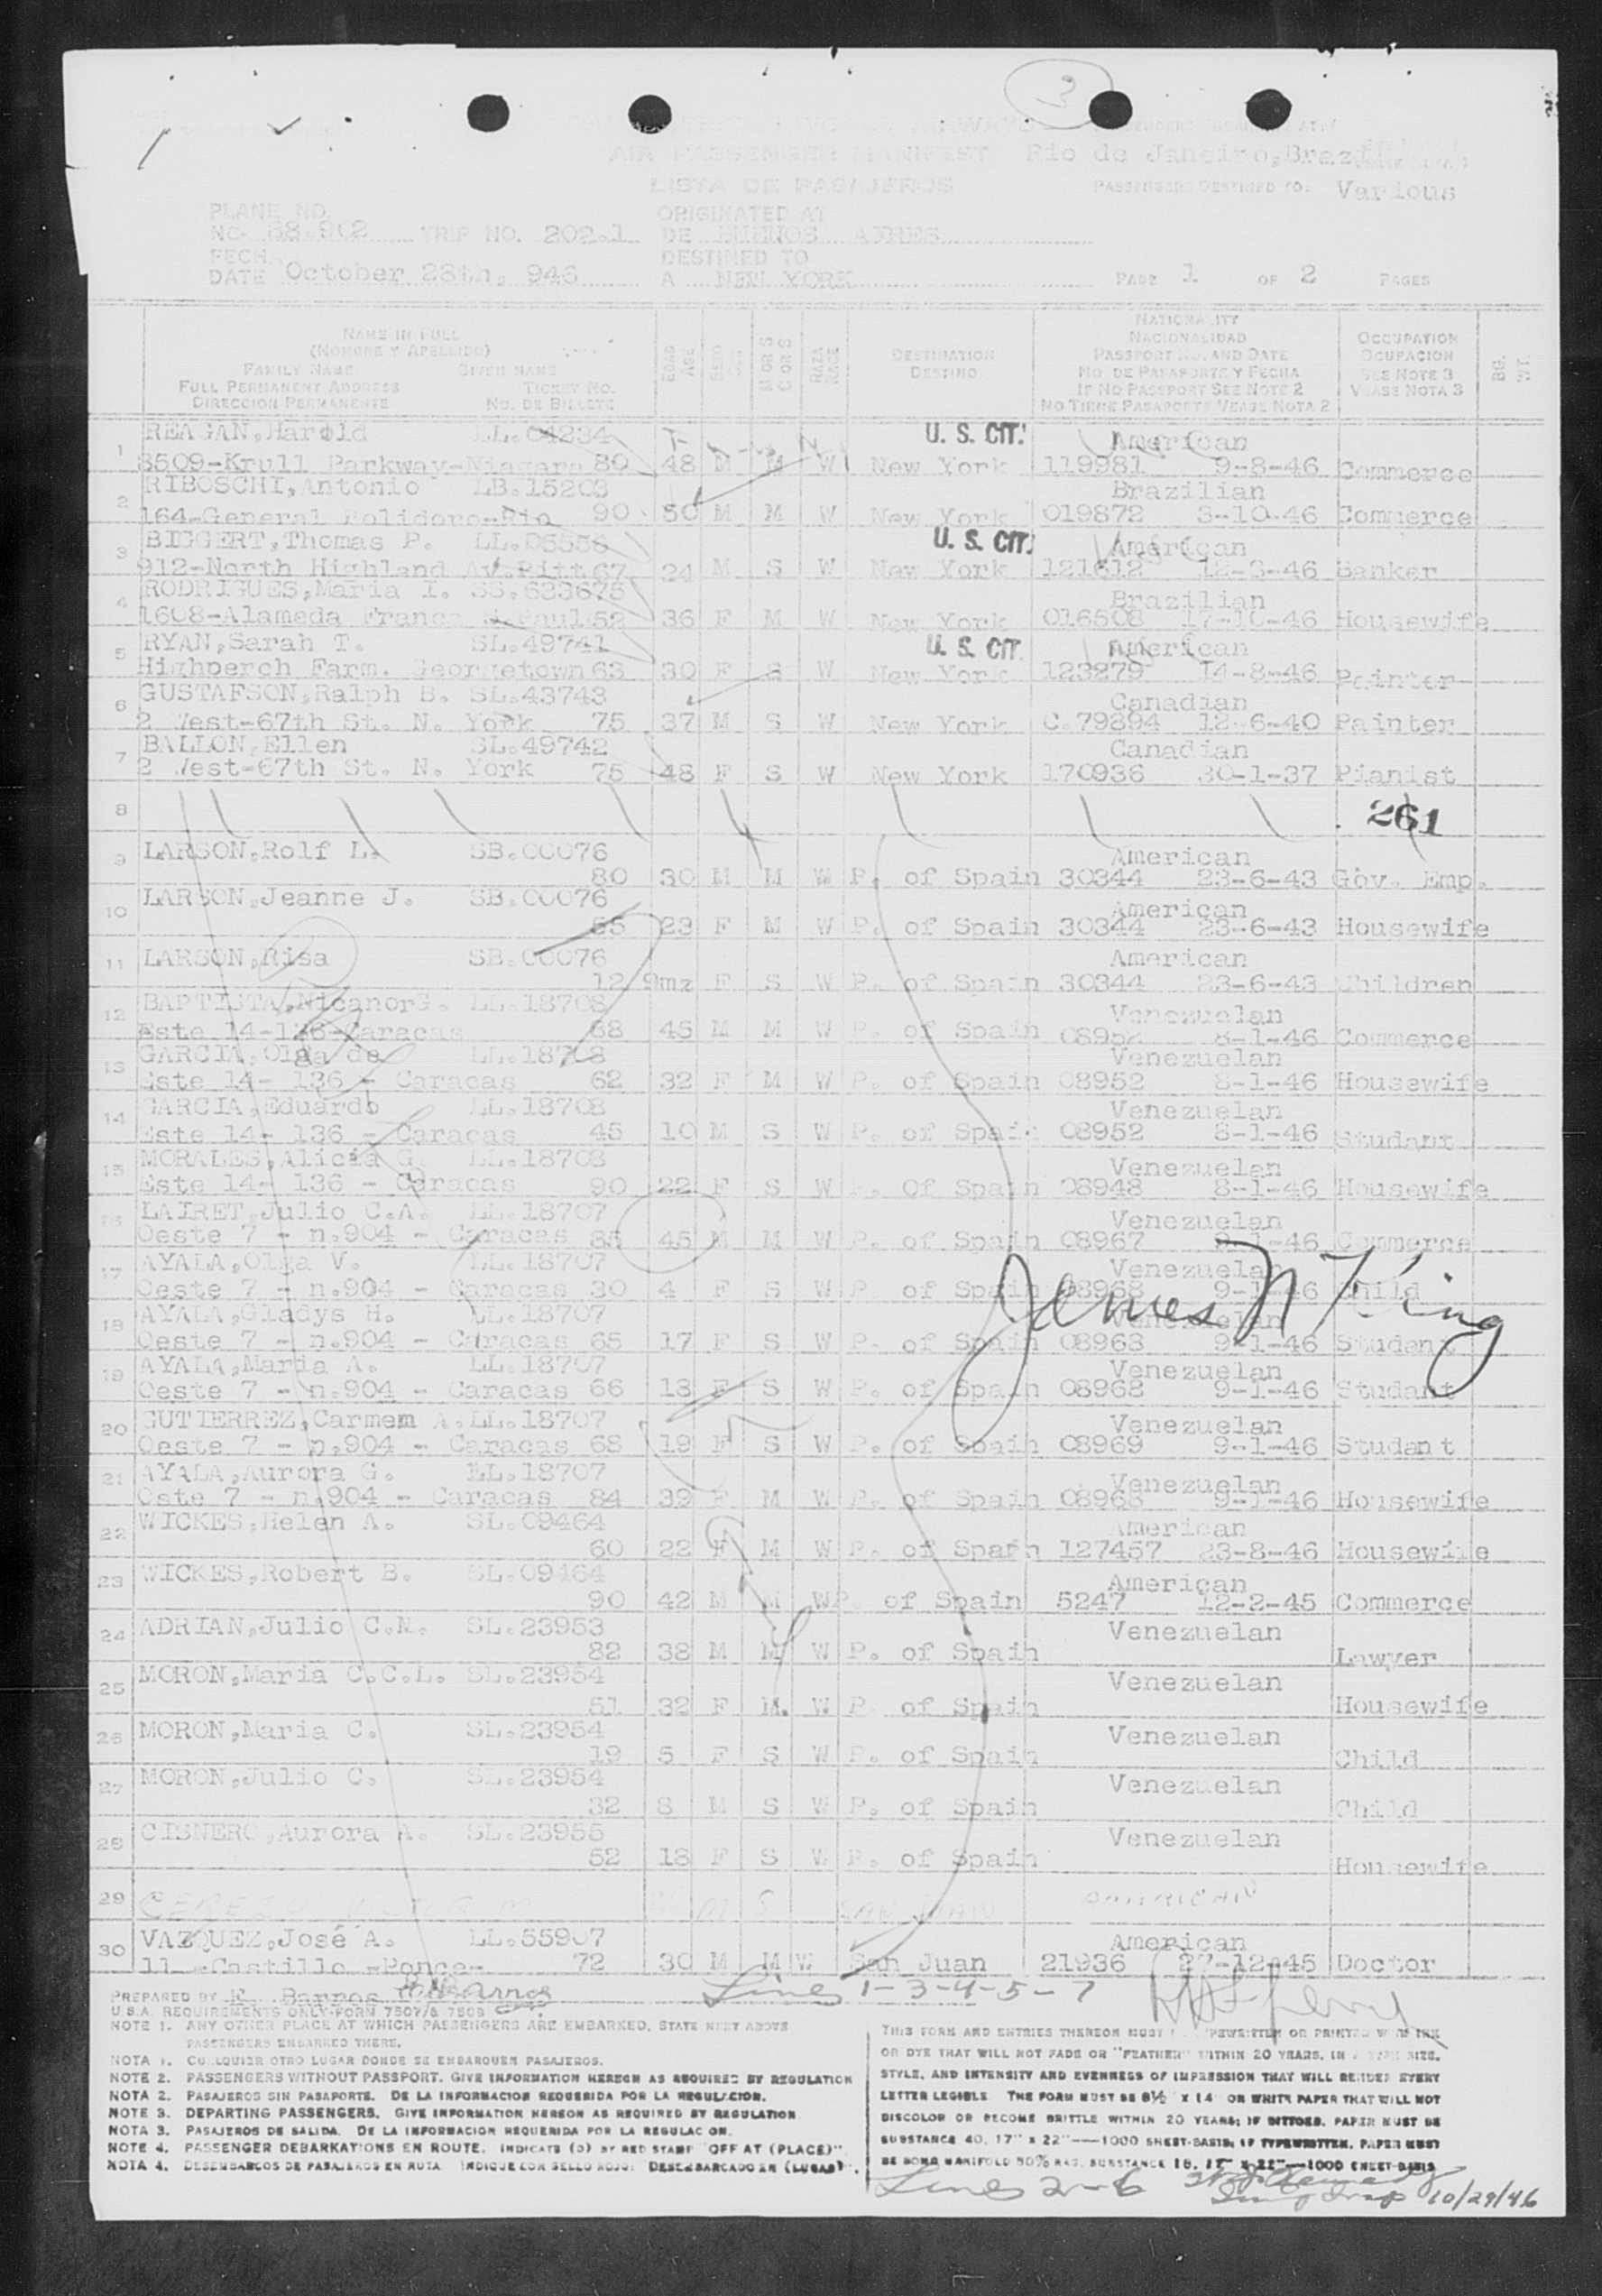 3
AIR PASSENGER MANIFEST Rio de Janeiro, Brazil
LISTA DE PASAJEROS PASSENGERS DESTINED TO: Various
PLANE NO. ORIGINATED AT
NO. 88.902 TRIP NO. 202.1 DE BUENOS AIRES
FECH DESTINED TO
DATE October 28th, 946 A NEW YORK PAGE 1 OF 2 PAGES
NAME IN FULL
(NOMBRE Y APELLIDO)
FAMILY NAME GIVEN NAME
FULL PERMANENT ADDRESS TICKET NO.
DIRECCION PERMANENTE NO. DE BILLETE
EDAD AGE SEXO M OR S C O S RAZA RACE
DESTINATION DESTINO
NATIONALITY
NACIONALIDAD
PASSPORT NO. AND DATE
NO. DE PASAPORTE Y FECHA
IF NO PASSPORT SEE NOTE 2
NO TIENE PASAPORTE VEASE NOTA 2
OCCUPATION
OCUPACION
SEE NOTE 3
VEASE NOTA 3
BG. WT.
1 REAGAN, Harold LL.04234 U. S. CIT. American
8509-Krull Parkway-Niagara 80 48 M M W New York 119981 9-8-46 Commerce
2 RIBOSCHI, Antonio LB.15203 Brazilian
164-General Polidoro-Rio 90 50 M M W New York 019872 3-10-46 Commerce
3 BIGGERT, Thomas P. LL.05558 U. S. CIT. American
912-North Highland Av.Pitt 67 24 M S W New York 121612 12-3-46 Banker
4 RODRIGUES, Maria I. SS.533675 Brazilian
1608-Alameda Franca S.Paul 52 36 F M W New York 016508 17-10-46 Housewife
5 RYAN, Sarah T. SL.49741 U. S. CIT. American
Highperch Farm. Georgetown 63 30 F S W New York 123279 14-8-46 Painter
6 GUSTAFSON, Ralph B. SL.43743 Canadian
2 West-67th St. N. York 75 37 M S W New York C.79894 12-6-40 Painter
7 BALLON, Ellen SL.49742 Canadian
2 West-67th St. N. York 75 48 F S W New York 170936 30-1-37 Pianist
8 261
9 LARSON, Rolf L. SB.00076 American
80 30 M M W P. of Spain 30344 23-6-43 Gov. Emp.
10 LARSON, Jeanne J. SB.00076 American
55 23 F M W P. of Spain 30344 23-6-43 Housewife
11 LARSON, Risa SB.00076 American
12 9mz F S W P. of Spain 30344 23-6-43 Children
12 BAPTISTA, NicanorG. LL.18708 Venezuelan
Este 14-136-Caracas 88 45 M M W P. of Spain 08952 8-1-46 Commerce
13 GARCIA, Olga de LL.18708 Venezuelan
Este 14- 136 - Caracas 62 32 F M W P. of Spain 08952 8-1-46 Housewife
14 GARCIA, Eduardo LL.18708 Venezuelan
Este 14- 136 - Caracas 45 10 M S W P. of Spain 08952 8-1-46 Studant
15 MORALES, Alicia G. LL.18708 Venezuelan
Este 14- 136 - Caracas 90 22 F S W P. Of Spain 08948 8-1-46 Housewife
16 LAIRET, Julio C.A. LL.18707 Venezuelan
Oeste 7 - n.904 - Caracas 85 45 M M W P. of Spain 08967 9-1-46 Commerce
17 AYALA, Olga V. LL.18707 Venezuelan
Oeste 7 - n.904 - Caracas 30 4 F S W P. of Spain 08968 9-1-46 Child
James N King
18 AYALA, Gladys H. LL.18707 Venezuelan
Oeste 7 - n.904 - Caracas 65 17 F S W P. of Spain 08968 9-1-46 Studant
19 AYALA, Maria A. LL.18707 Venezuelan
Oeste 7 - n.904 - Caracas 66 18 F S W P. of Spain 08968 9-1-46 Studant
20 GUTIERREZ, Carmem A. LL.18707 Venezuelan
Oeste 7 - n.904 - Caracas 68 19 F S W P. of Spain 08969 9-1-46 Studant
21 AYALA, Aurora G. LL.18707 Venezuelan
Oste 7 - n.904 - Caracas 84 39 F M W P. of Spain 08968 9-1-46 Housewife
22 WICKES, Helen A. SL.09464 American
60 22 F M W P. of Spain 127457 23-8-46 Housewife
23 WICKES, Robert B. SL.09464 American
90 42 M M W P. of Spain 5247 12-2-45 Commerce
24 ADRIAN, Julio C.N. SL.23953 Venezuelan
82 38 M M W P. of Spain Lawyer
25 MORON, Maria C.C.L. SL.23954 Venezuelan
51 32 F M. W P. of Spain Housewife
26 MORON, Maria C. SL.23954 Venezuelan
19 5 F S W P. of Spain Child
27 MORON, Julio C. SL.23954 Venezuelan
32 8 M S W P. of Spain Child
28 CISNERO, Aurora A. SL.23955 Venezuelan
52 18 F S W P. of Spain Housewife
29 M S SAN JUAN AMERICAN
30 VAZQUEZ, José A. LL.55907 American
11 -Castillo -Ponce- 72 30 M M W San Juan 21936 27-12-45 Doctor
PREPARED BY E. Barros Lines 1-3-4-5-7
U S A. REQUIREMENTS ONLY-FORM 7507/& 7509
NOTE 1. ANY OTHER PLACE AT WHICH PASSENGERS ARE EMBARKED, STATE NEXT ABOVE
PASSENGERS EMBARKED THERE.
NOTA 1. CUALQUIER OTRO LUGAR DONDE SE EMBARQUEN PASAJEROS.
NOTE 2. PASSENGERS WITHOUT PASSPORT. GIVE INFORMATION HEREON AS REQUIRED BY REGULATION
NOTA 2. PASAJEROS SIN PASAPORTE. DE LA INFORMACION REQUERIDA POR LA REGULACION.
NOTE 3. DEPARTING PASSENGERS. GIVE INFORMATION HEREON AS REQUIRED BY REGULATION
NOTA 3. PASAJEROS DE SALIDA. DE LA INFORMACION REQUERIDA POR LA REGULACION.
NOTE 4. PASSENGER DEBARKATIONS EN ROUTE. INDICATE (D) BY RED STAMP "OFF AT (PLACE)".
NOTA 4. DESEMBARCOS DE PASAJEROS EN RUTA. INDIQUE CON SELLO ROJO: DESEMBARCADO EN (LUGAR).
THIS FORM AND ENTRIES THEREON MUST BE TYPEWRITTEN OR PRINTED WITH INK
OR DYE THAT WILL NOT FADE OR "FEATHER" WITHIN 20 YEARS, IN A TYPE SIZE,
STYLE, AND INTENSITY AND EVENNESS OF IMPRESSION THAT WILL RENDER EVERY
LETTER LEGIBLE THE FORM MUST BE 8½ x 14 ON WHITE PAPER THAT WILL NOT
DISCOLOR OR BECOME BRITTLE WITHIN 20 YEARS; IF DITTOED, PAPER MUST BE
SUBSTANCE 40, 17" x 22"—1000 SHEET-BASIS; IF TYPEWRITTEN, PAPER MUST
BE BOND MANIFOLD 50% RAG, SUBSTANCE 16, 17" x 22"—1000 SHEET-BASIS
Lines 2-6
10/29/46